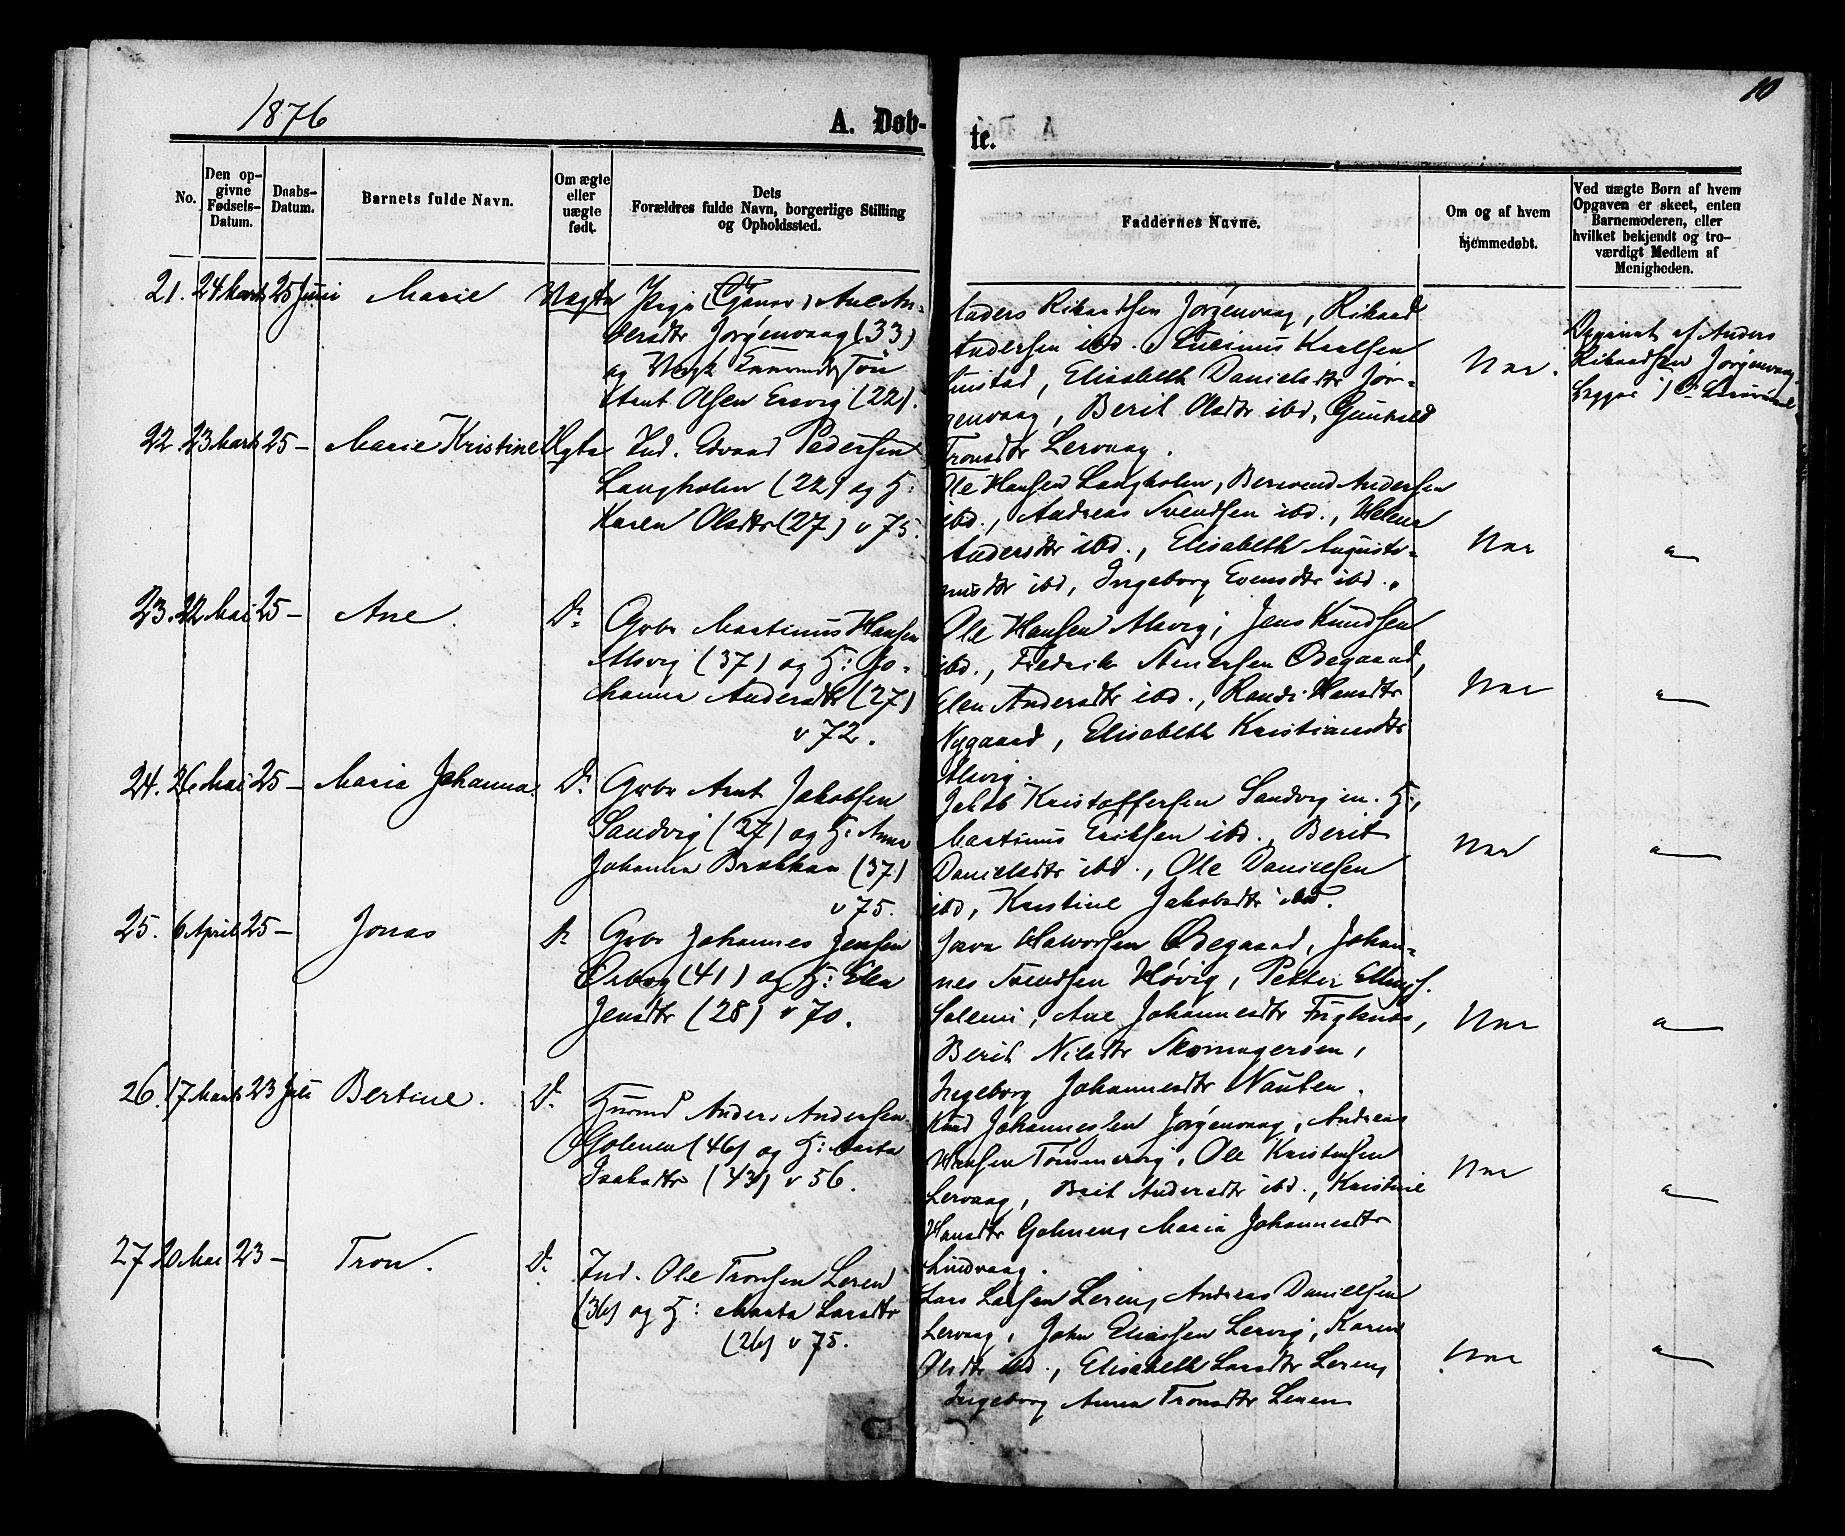 1876
A. Døb-
te.
10
No.
Den op-
givne
Fødsels-
Datum.
Daabs-
Datum.
Barnets fulde Navn.
Om ægte
eller
uægte
født.
Dets
Forældres fulde Navn, borgerlige Stilling
og Opholdssted.
Faddernes Navne.
Om og af hvem
hjemmedøbt.
Ved uægte Børn af hvem
Opgaven er skeet, enten
Barnemoderen, eller
hvilket bekjendt og tro-
værdigt Medlem af
Menigheden.
21. 24 Marts 25 Juni Marie Uægte Pige
Jørgenvaag (33)
og Ungk
Arnt Olsen (22).
Anders Rikardsen Jørgenvaag, Rikard
Andersen ibd. Karlsen
Elisabeth Danielsdtr Jør-
genvaag, Berit Olsdtr ibd, Gunhild
Tronsdtr Lervaag.
Nei.
af Anders
Rikardsen Jørgenvaag
22. 23 Marts 25 – Marie Kristine Ægte Ind. Edvard Pedersen
Langholen (22) og H:
Karen Olsdtr (27) v 75.
Ole Hansen Langholen, Andersen
ibd., Andreas Svendsen ibd., Helene
Andersdtr ibd., Elisabeth Augusti-
nusdtr ibd, Ingeborg Evensdtr ibd.
Nei
23. 22 Mai 25 – Ane. Do Grbr Martinus Hansen
Alsvig (37) og H: Jo-
hanna Andersdtr (27)
v 72.
Ole Hansen Alsvig, Jens Knudsen
ibd., Fredrik Ødegaard,
Elen Andersdtr ibd., Randi Hansdtr
Nygaard, Elisabeth Kristiansdtr
Alsvig.
Nei
24. 26 Mai 25 – Maria Johanna. Do Grbr Arnt Jakobsen
Sandvig (27) og H: Anne
Johanna (37)
v 75.
Jakob Kristoffersen Sandvig m. H.,
Martinus Eriksen ibd., Berit
Danielsdtr ibd., Ole Danielsen
ibd, Kristine Jakobsdtr ibd.
Nei
25. 6 April 25 – Jonas Do Grbr Johannes Jensen
(41) og H: Elen
Jensdtr (28) v 70.
Halvorsen Ødegaard, Johan-
nes Svendsen Høvig, Petter Ellings.
Solemi, Ane Johannesdtr Fuglenes,
Berit Nilsdtr
Ingeborg Johannesdtr
Nei
26. 17 Marts 23 Juli Bertine. Do Anders Andersen
Golmen (46) og H: Marta
Isaksdtr (43) v 56.
Knud Johannessen Jørgenvaag, Andreas
Hansen Tømmervig, Ole Kristensen
Lervaag, Berit Andersdtr ibd., Kristine
Hansdtr Golmen, Maria Johannesdtr
Lindvaag.
Nei
27 20 Mai 23 – Tron. Do Ind. Ole Tronsen Leren
(36) og H: Marta Larsdtr
(26) v 75.
Lars Larsen Leren, Andreas Danielsen
Lervaag, John Eliassen Lervig, Karen
Olsdtr ibd., Elisabeth Larsdtr Leren,
Ingeborg Anna Tronsdtr Leren
Nei